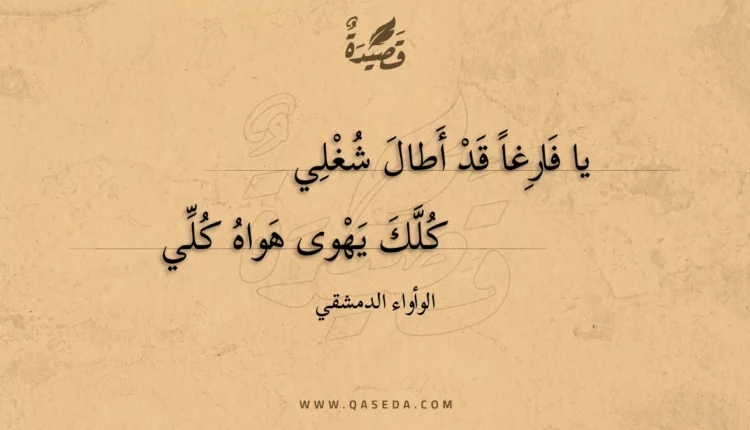 قَصِيْدَةٌ
يا فَارِغاً قَدْ أَطالَ شُغْلِي
كُلَّكَ يَهْوى هَواهُ كُلِّي
الوأواء الدمشقي
WWW.QASEDA.COM